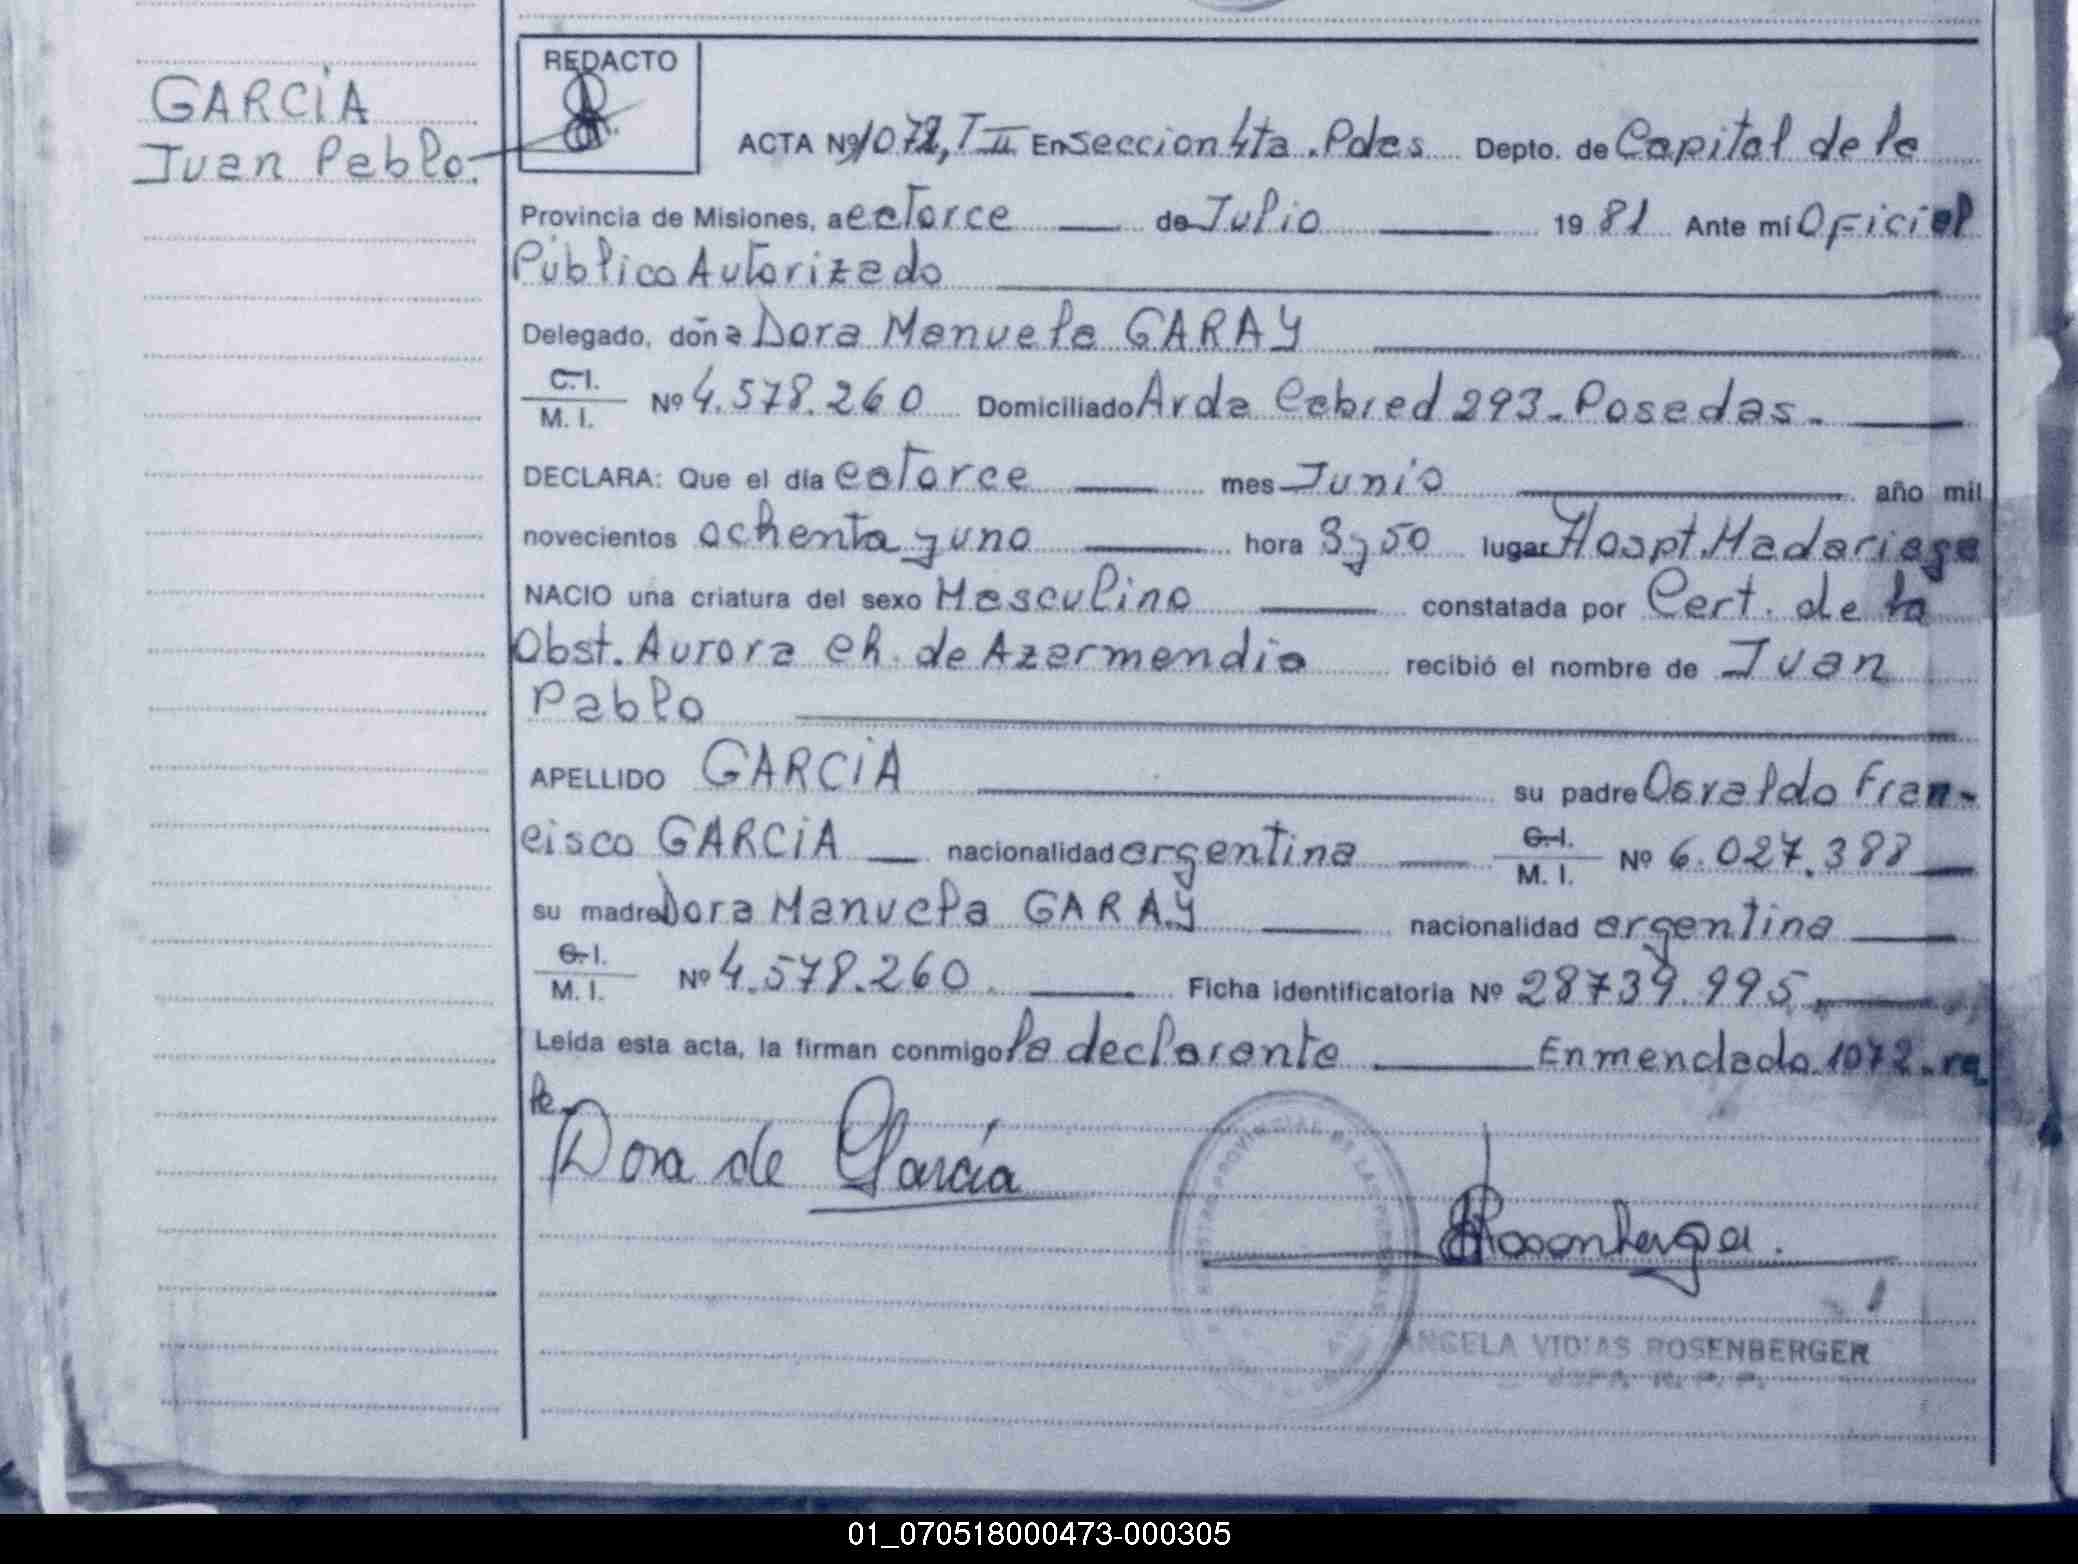 GARCIA
Juan Pablo.
REDACTO
ACTA Nº 1072, T II En Seccion 4ta. Pdas Depto. de Capital de la
Provincia de Misiones, a catorce de Julio 1981 Ante mí Oficial
Público Autorizado
Delegado, doña Dora Manuela GARAY
C.I. / M. I. Nº 4.578.260 Domiciliado Avda Cabred 293 - Posadas.
DECLARA: Que el día catorce mes Junio año mil
novecientos ochenta y uno hora 3 y 50 lugar Hospt. Madariaga
NACIO una criatura del sexo Masculino constatada por Cert. de la
Obst. Aurora Ch. de Azarmendia recibió el nombre de Juan
Pablo
APELLIDO GARCIA su padre Osvaldo Fran-
cisco GARCIA nacionalidad argentina C.I. / M. I. Nº 6.027.388
su madre Dora Manuela GARAY nacionalidad argentina
C.I. / M. I. Nº 4.578.260. Ficha identificatoria Nº 28739.995
Leida esta acta, la firman conmigo la declarante Enmendado. 1072. va
le.
Dora de García
Rosenberger.
PROVINCIAL DE LAS PERSONAS
ANGELA VIDIAS ROSENBERGER
01_070518000473-000305